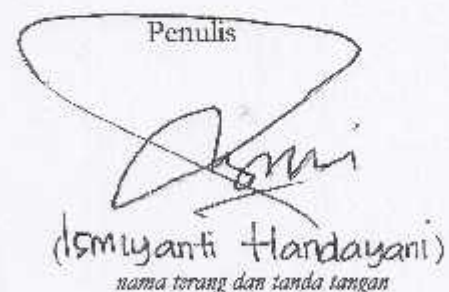 Penulis
(Ismiyanti Handayani)
nama terang dan tanda tangan